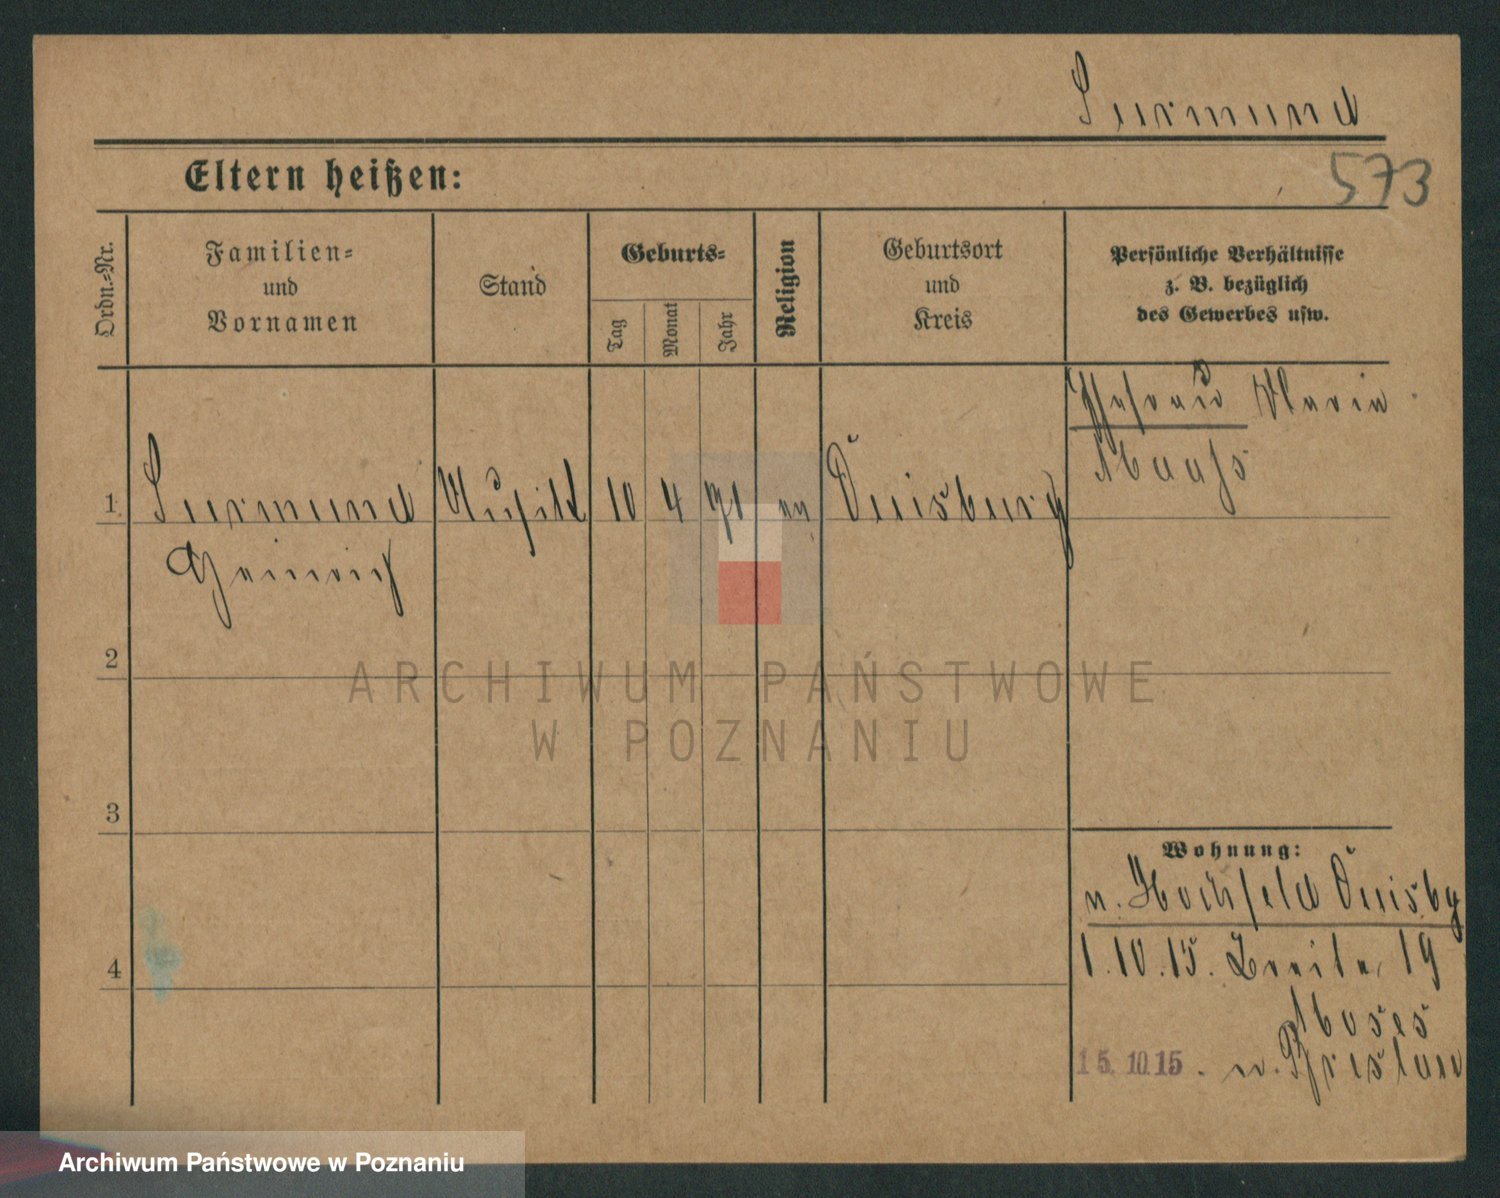 Surmund
573
Eltern heißen:
Ordn.-Nr.
Familien-
und
Vornamen
Stand
Geburts-
Tag
Monat
Jahr
Religion
Geburtsort
und
Kreis
Persönliche Verhältnisse
z. B. bezüglich
des Gewerbes usw.
Ehefrau Maria
1 Surmund Musik 10 4 71 ev Duisburg
Heinrich
2
3
4
Wohnung:
n. Hochfeld Duisbg
1.10.15. Breite 19
Moses
15.10.15. n. Breslau
ARCHIWUM PAŃSTWOWE
W POZNANIU
Archiwum Państwowe w Poznaniu